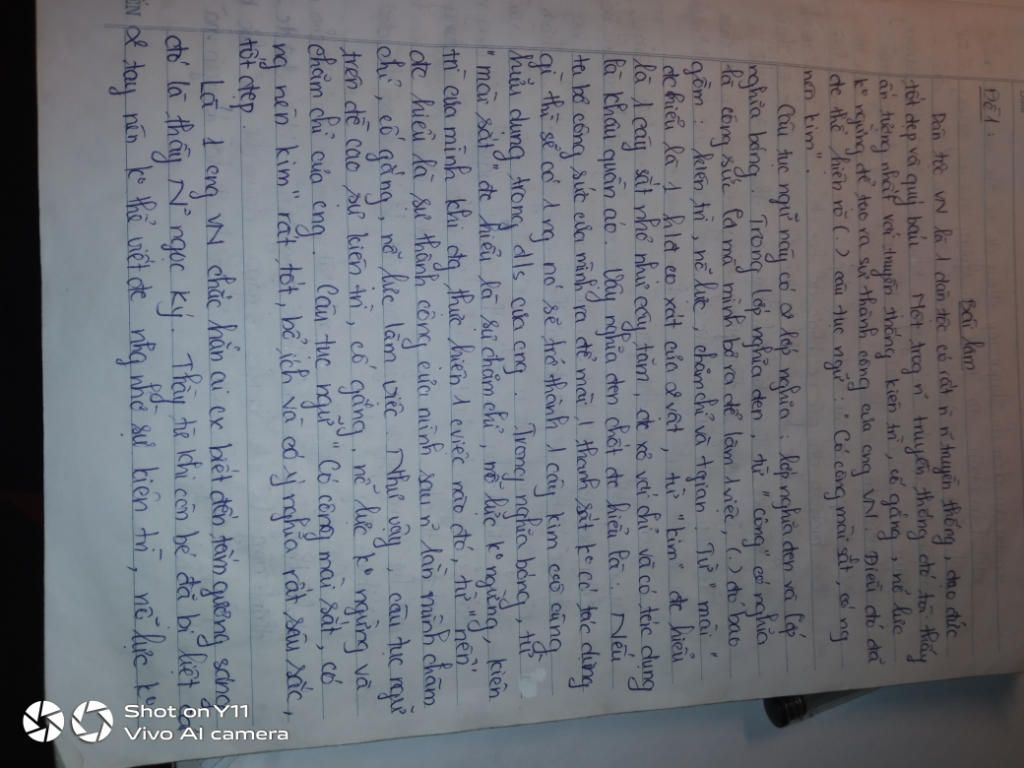 Đề 1.
Bài làm
Dân tộc VN là 1 dân tộc có rất n' n' truyền thống, đạo đức
tốt đẹp và quý báu. Một trog n' truyền thống đó ta thấy
ấn tượng nhất với truyền thống kiên trì, cố gắng, nỗ lực
k° ngừng để tạo ra sự thành công của cng VN. Điều đó đã
đc thể hiện rõ (.) câu tục ngữ: "Có công mài sắt, có ng
nên kim".
Câu tục ngữ này có 2 lớp nghĩa: lớp nghĩa đen và lớp
nghĩa bóng. Trong lớp nghĩa đen, từ "công" có nghĩa
là công sức là mà mình bỏ ra để làm 1 việc, (.) đó bao
gồm: kiên trì, nỗ lực, chăm chỉ và t.gian. Từ "mài"
đc hiểu là 1 hđ cọ xát của sự vật, từ "kim" đc hiểu
là 1 cây sắt nhỏ như cây tăm, đc xỏ với chỉ và có tác dụng
là khâu quần áo. Vậy nghĩa đen chốt đc hiểu là: Nếu
ta bỏ công sức của mình ra để mài 1 thanh sắt k° có tác dụng
gì thì sẽ có 1 ng nó sẽ trở thành 1 cây kim vô cùng
hữu dụng trong đ/s của cng. Trong nghĩa bóng, từ
"mài sắt" đc hiểu là sự chăm chỉ, nỗ lực k° ngừng, kiên
trì của mình khi đg thực hiện 1 cviệc nào đó, từ "nên
đc hiểu là sự thành công của mình sau n' lần mình chăm
chỉ, cố gắng, nỗ lực làm việc. Như vậy, câu tục ngữ
trên đề cao sự kiên trì, cố gắng, nỗ lực k° ngừng và
chăm chỉ của cng. Câu tục ngữ "Có công mài sắt, có
ng nên kim" rất tốt, bổ ích và có ý nghĩa rất sâu sắc,
tốt đẹp.
Là 1 cng VN chắc hẳn ai cx biết đến tấm gương sáng
đó là thầy N~ ngọc Ký. Thầy từ khi còn bé đã bị liệt cả
2 tay nên k° thể viết đc nhg nhờ sự kiên trì, nỗ lực k°